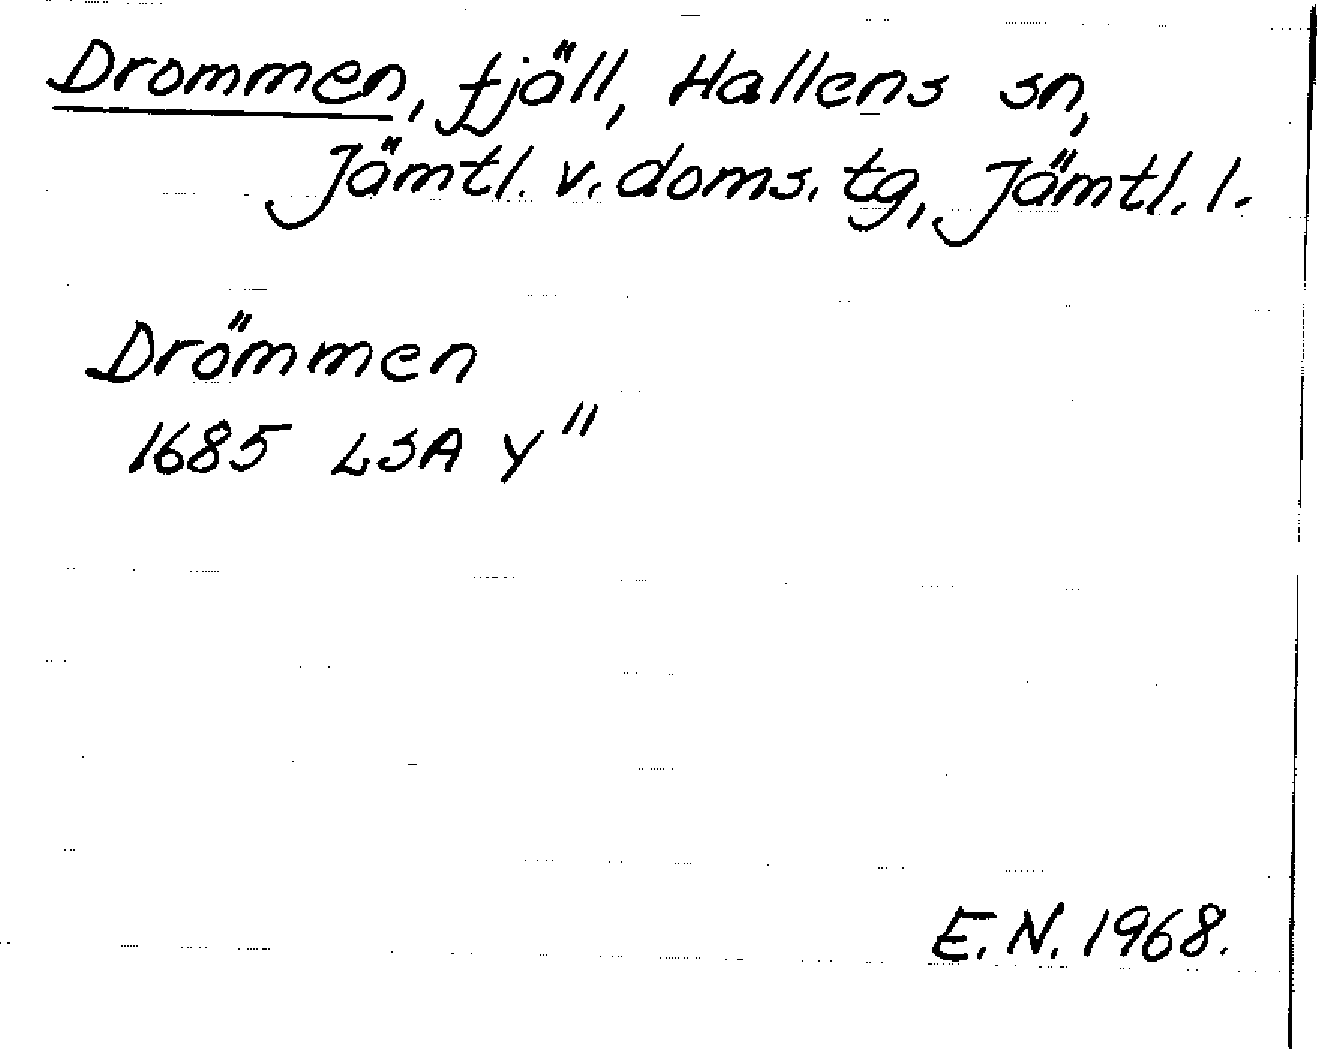 Drommen, fjäll, Hallens sn,
Jämtl. v. doms. tg, Jämtl. l.
Drömmen
1685 LSA Y"
E. N. 1968.